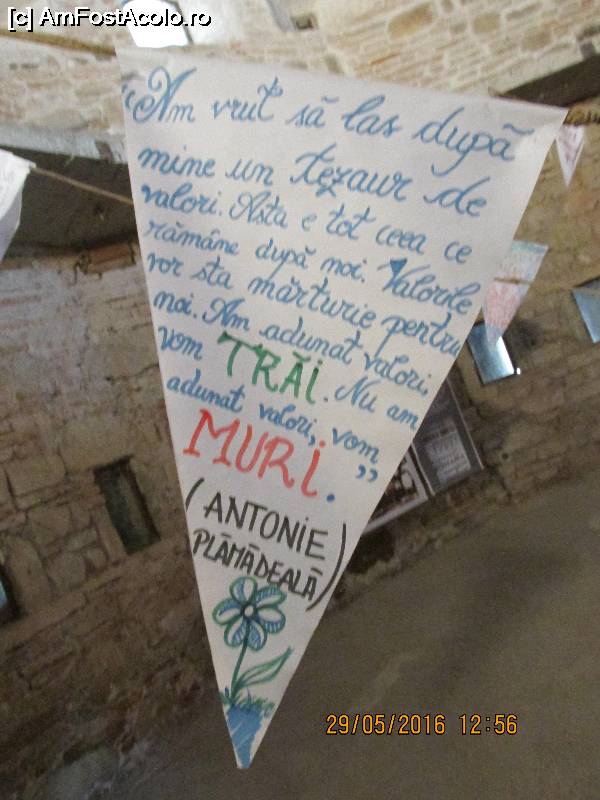 [c] AmFostAcolo.ro
“Am vrut să las după
mine un tezaur de
valori. Asta e tot ceea ce
rămâne după noi. Valorile
vor sta mărturie pentru
noi. Am adunat valori,
vom TRĂi. Nu am
adunat valori, vom
MURi.”
(ANTONiE
PLĂMĂDEALĂ)
29/05/2016 12:56